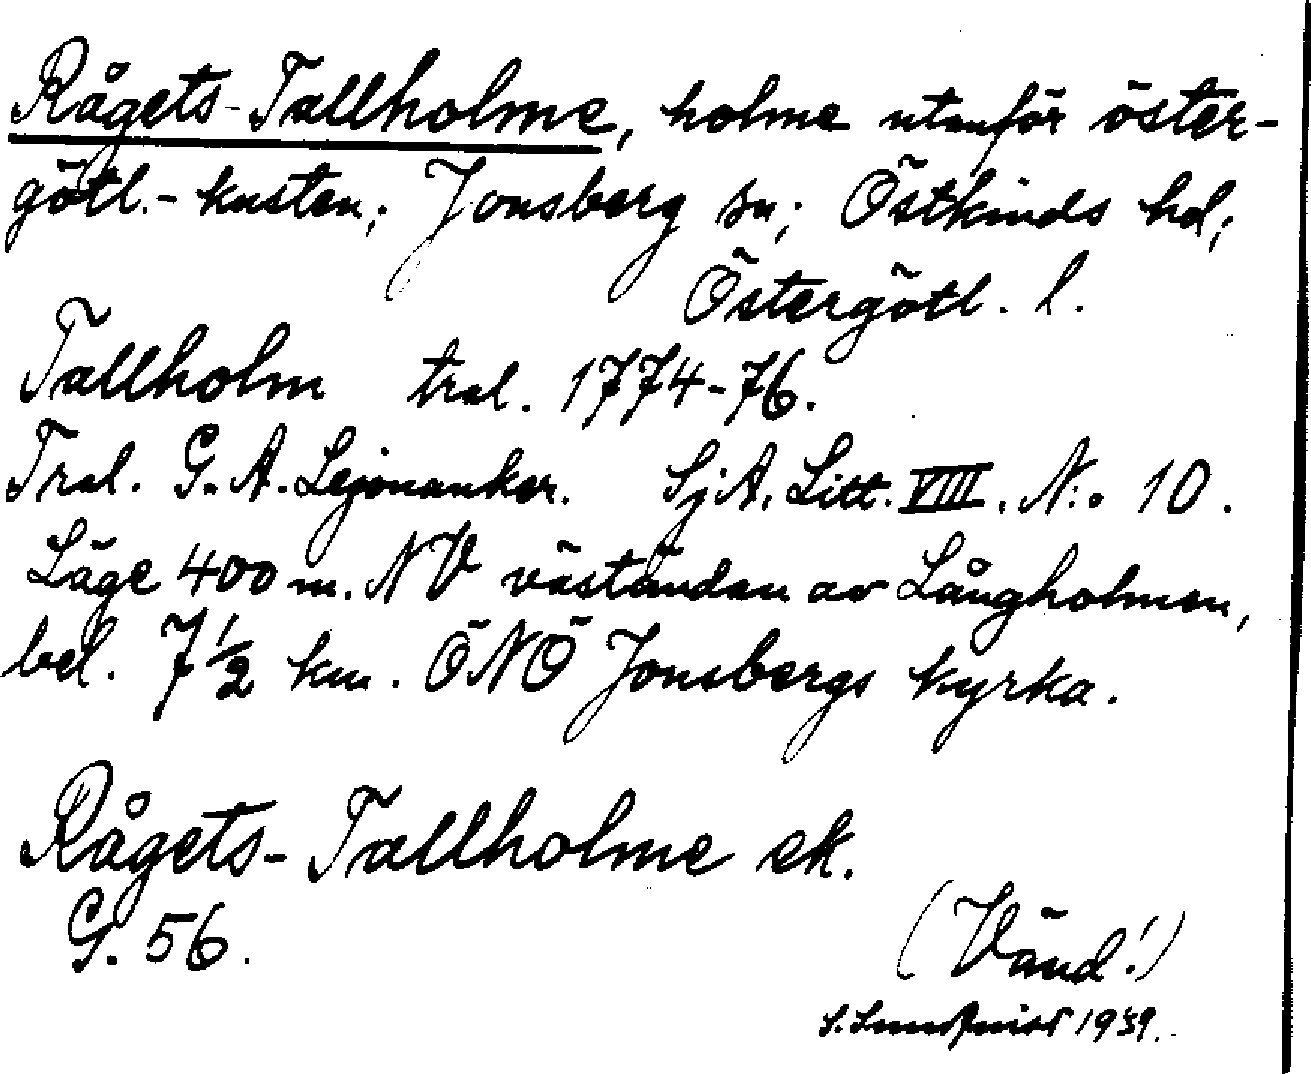 Rågets-Tallholme, holme utanför öster-
götl.-kusten; Jonsberg sn; Östkinds hd;
Östergötl. l.
Tallholm tral. 1774-76.
Tral. G. A. Lejonanker. SjA. Litt. VIII. N:o 10.
Läge 400 m. NV väständan av Långholmen,
bel. 7 1/2 km. ÖNÖ Jonsbergs kyrka.
Rågets-Tallholme ek.
G. 56.
(Vänd!)
S. Lundqvist 1939.